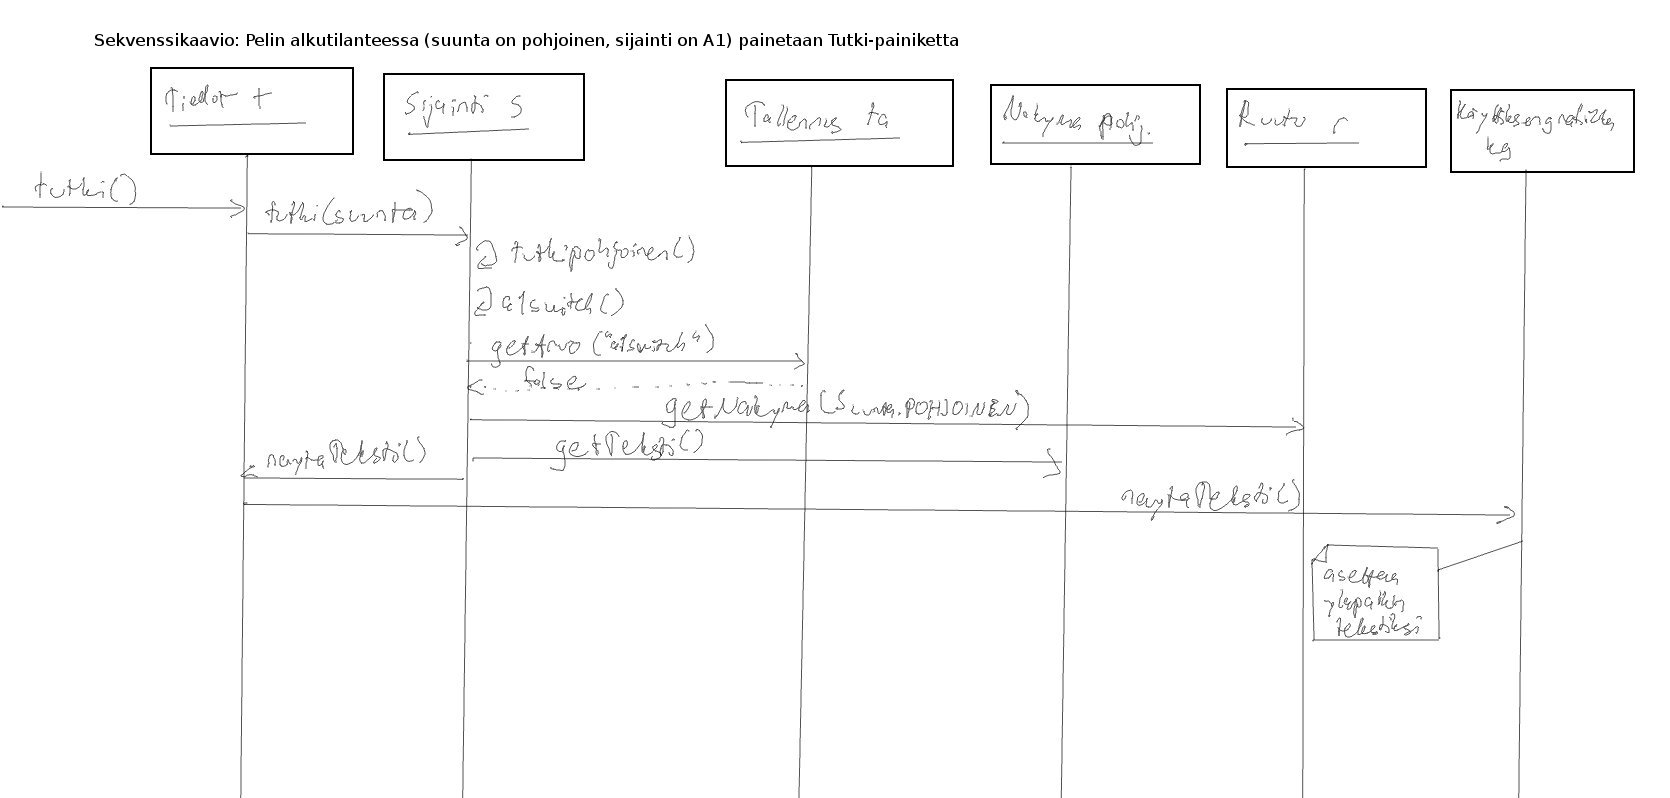 Sekvenssikaavio: Pelin alkutilanteessa (suunta on pohjoinen, sijainti on A1) painetaan Tutki-painiketta
Tiedot t
Sijainti s
Tallennus ta
Nakyma pohj.
Ruutu r
kg
tutki()
tutki(suunta)
tutkipohjoinen()
a1switch()
getArvo ("a1switch")
false
getNakyma (Suunta.POHJOINEN)
getTeksti()
naytaTeksti()
naytaTeksti()
asettaa
tekstiksi